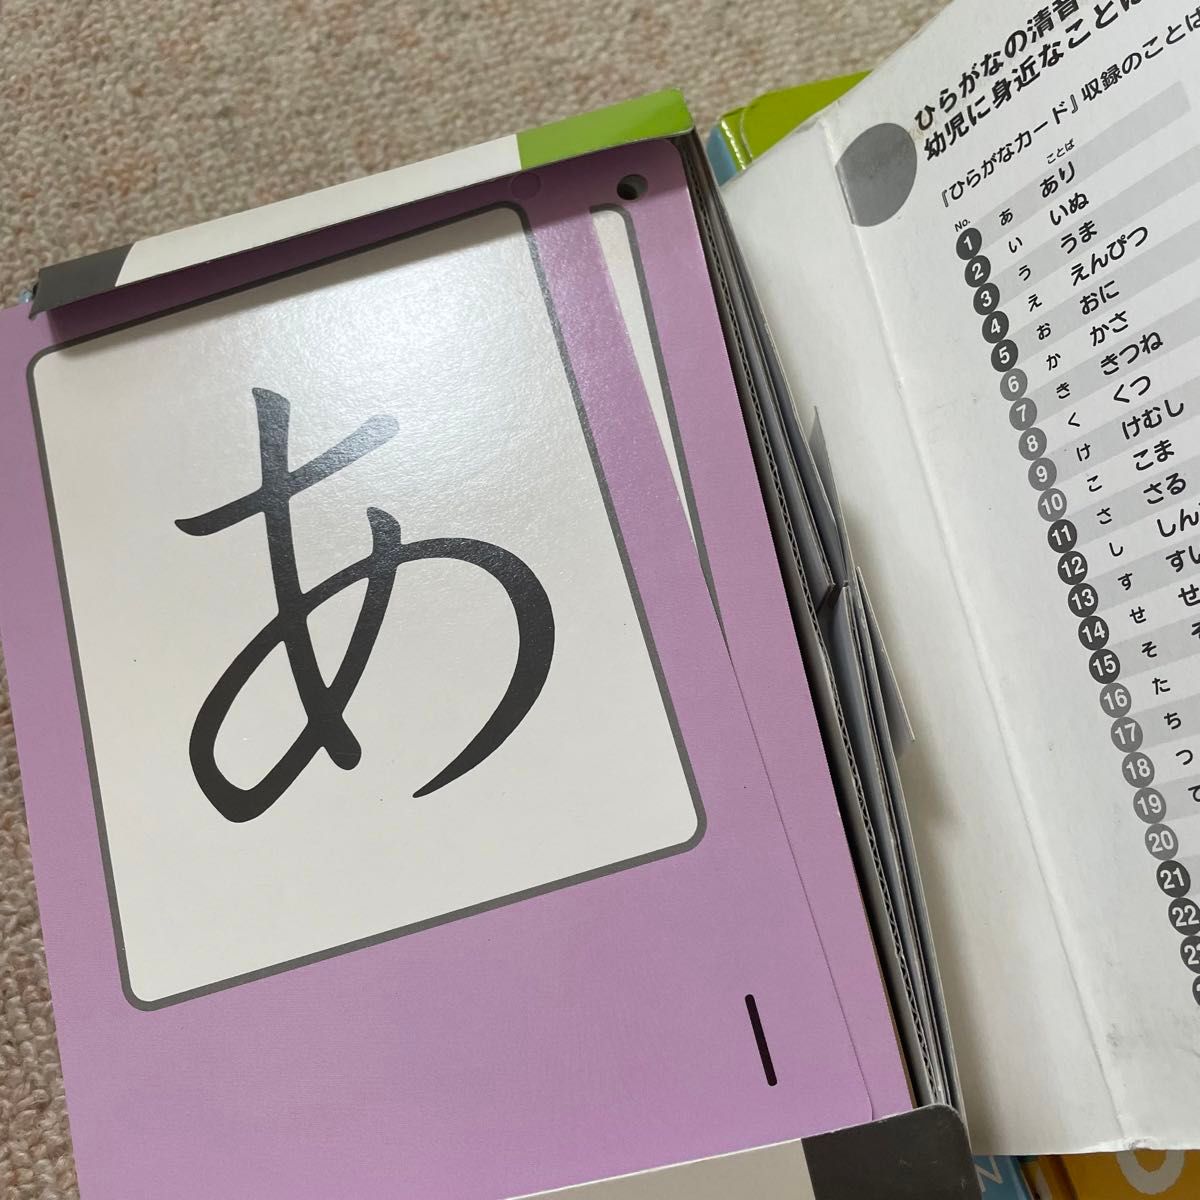 あ
1
ひらがなの清音
幼児に身近なことば
『ひらがなカード』収録のことば
No. ことば
1 あ あり
2 い いぬ
3 う うま
4 え えんぴつ
5 お おに
6 か かさ
7 き きつね
8 く くつ
9 け けむし
10 こ こま
11 さ さる
12 し しん
13 す すい
14 せ せ
15 そ そ
16 た
17 ち
18 つ
19 て
20
21
22